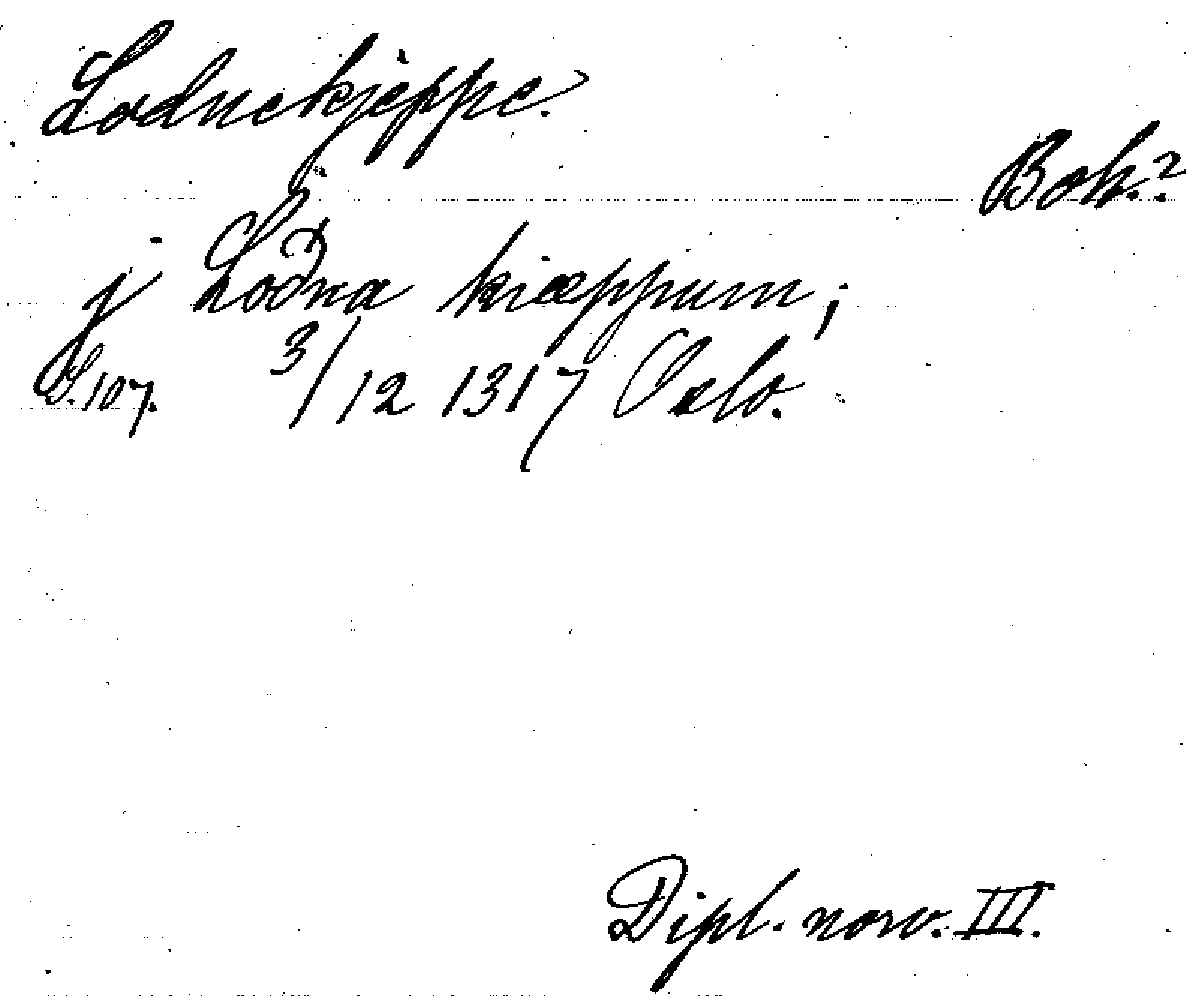 Lodnekjeppe.
Boh.?
j Loðna kiæppum;
S. 107. 3/12 1317 Oslo.
Dipl. norv. III.